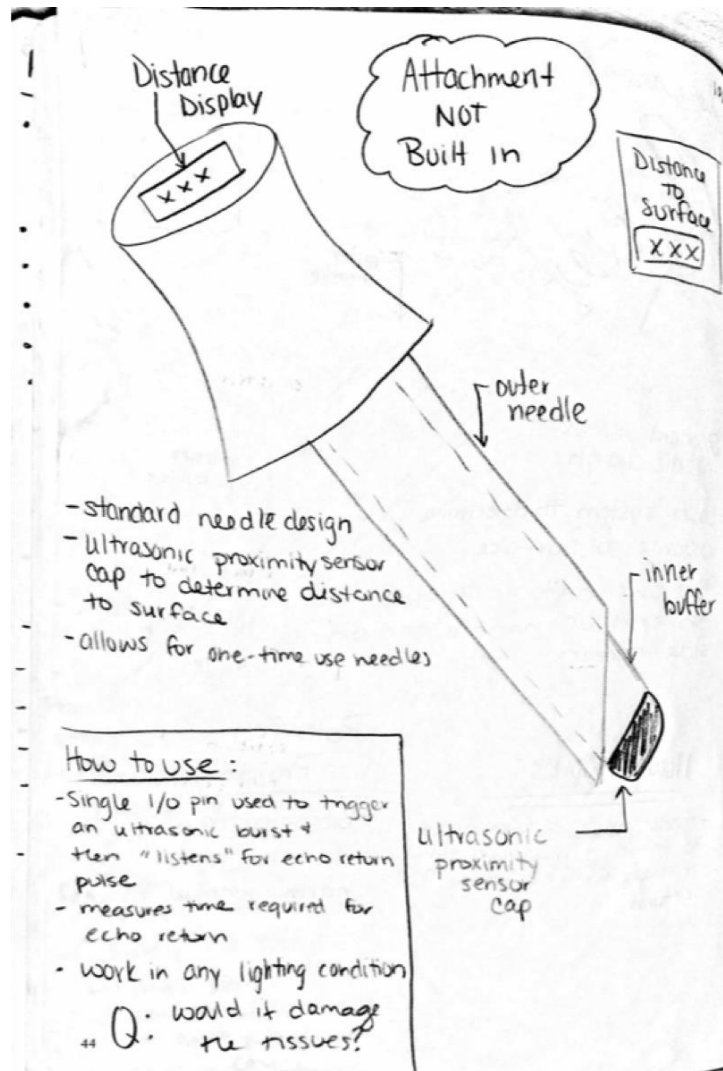 Distance
Display
XXX
Attachment
NOT
Built In
Distance
TO
Surface
XXX
outer
needle
inner
buffer
-standard needle design
-ultrasonic proximity sensor
cap to determine distance
to surface
-allows for one-time use needles
How to use:
-Single I/O pin used to trigger
an ultrasonic burst &
then "listens" for echo return
pulse
- measures time required for
echo return
- work in any lighting condition
Q: would it damage
the tissues?
44
ultrasonic
proximity
sensor
cap